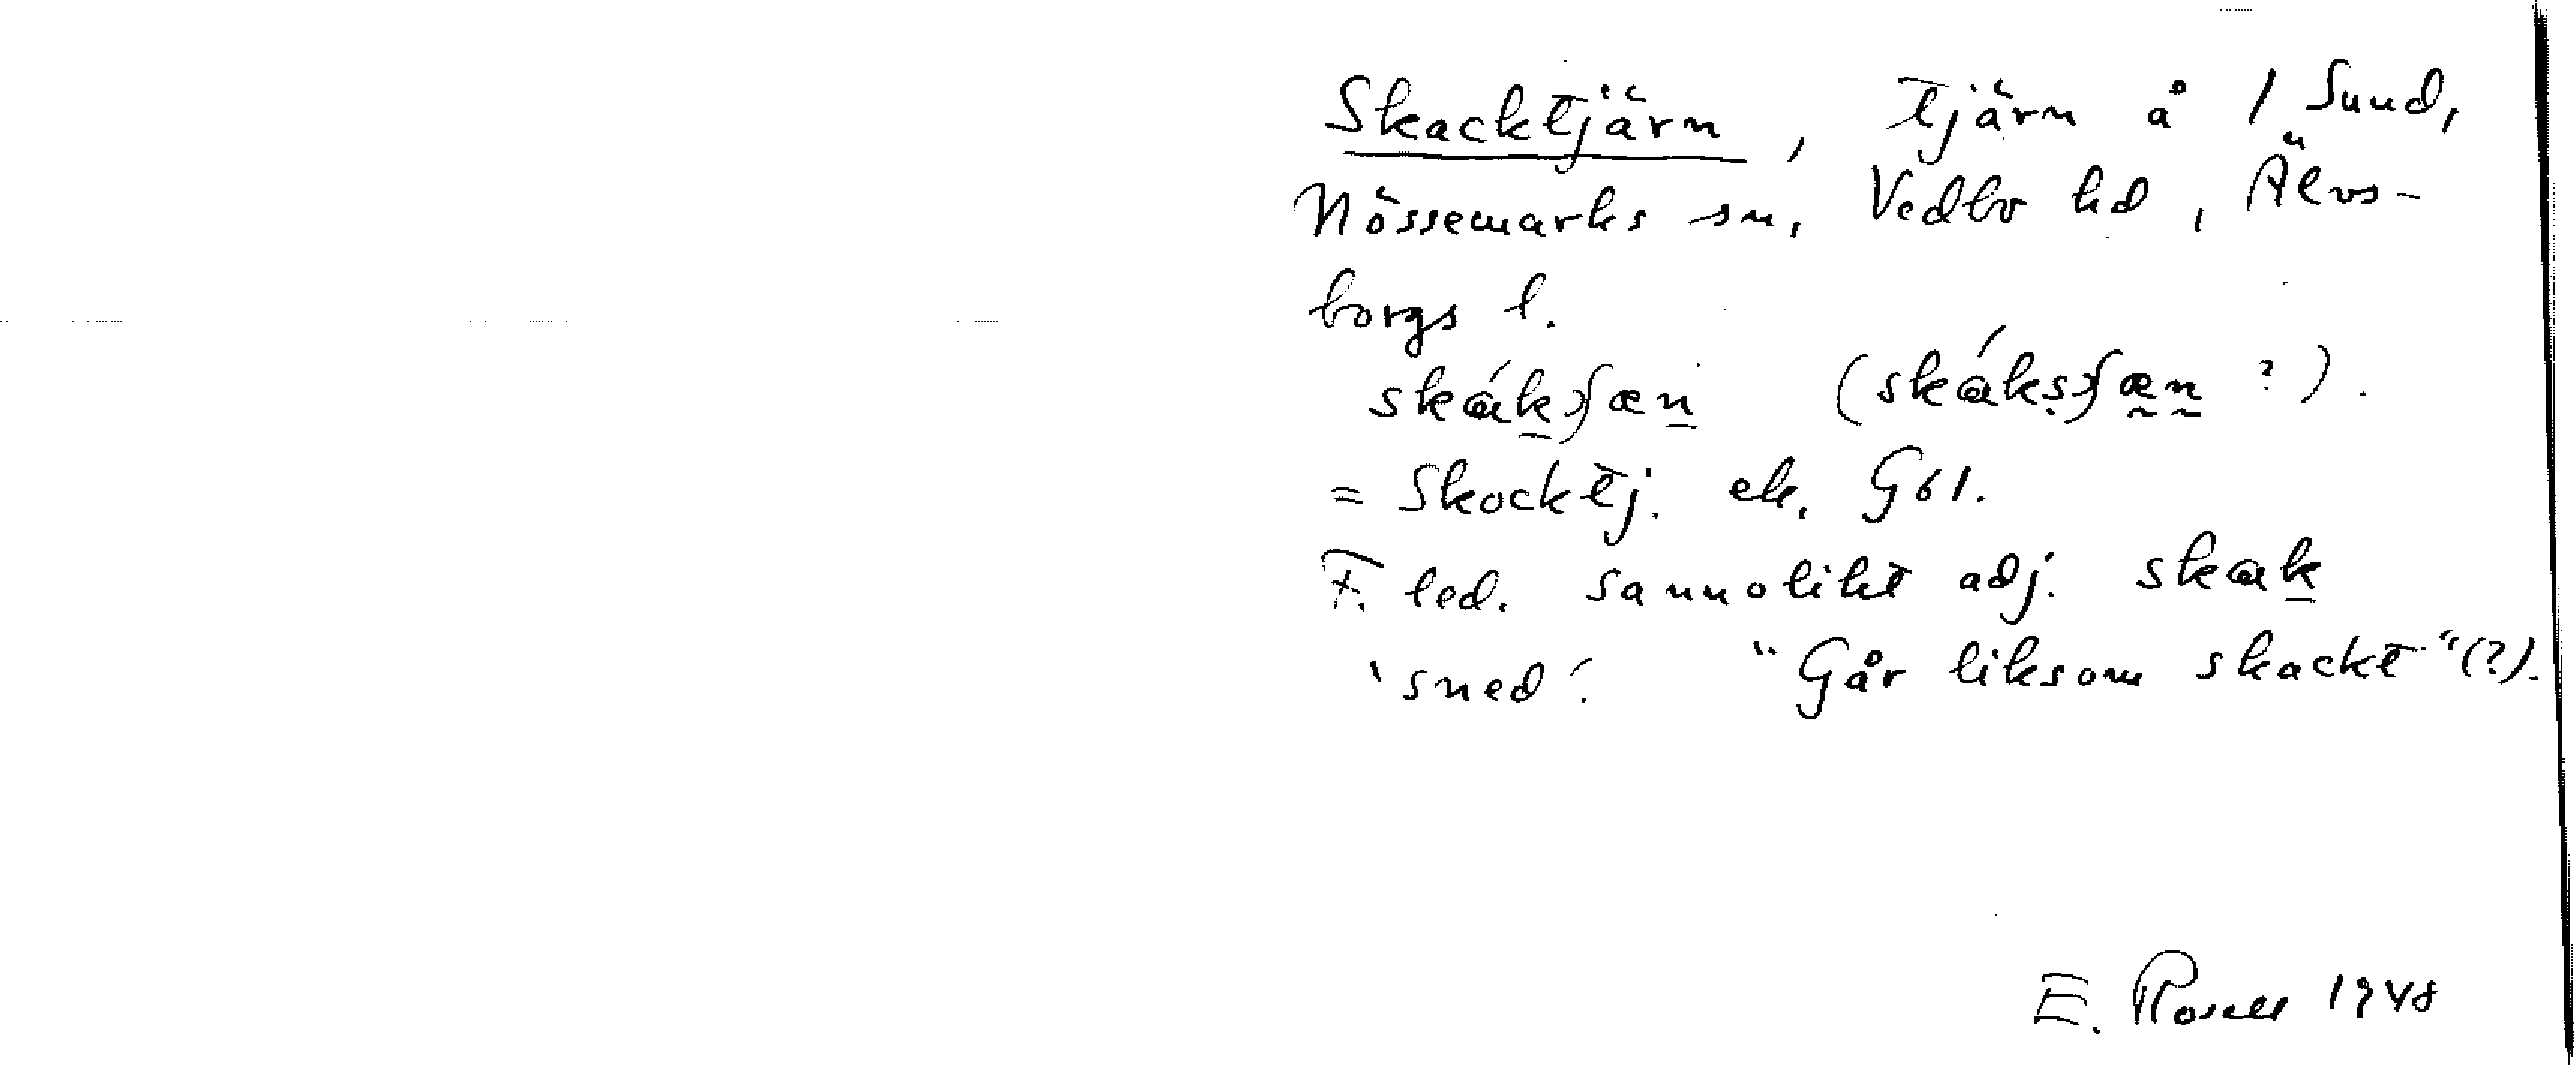 Skacktjärn, tjärn å 1 Sund,
Nössemarks sn, Vedbo hd, Älvs-
borgs l.
skákʃæn (skákʂʃæn ?).
= Skocktj. ek. G61.
F. led. sannolikt adj. skak
'sned'. "Går liksom skackt" (?).
E. Rosell 1948